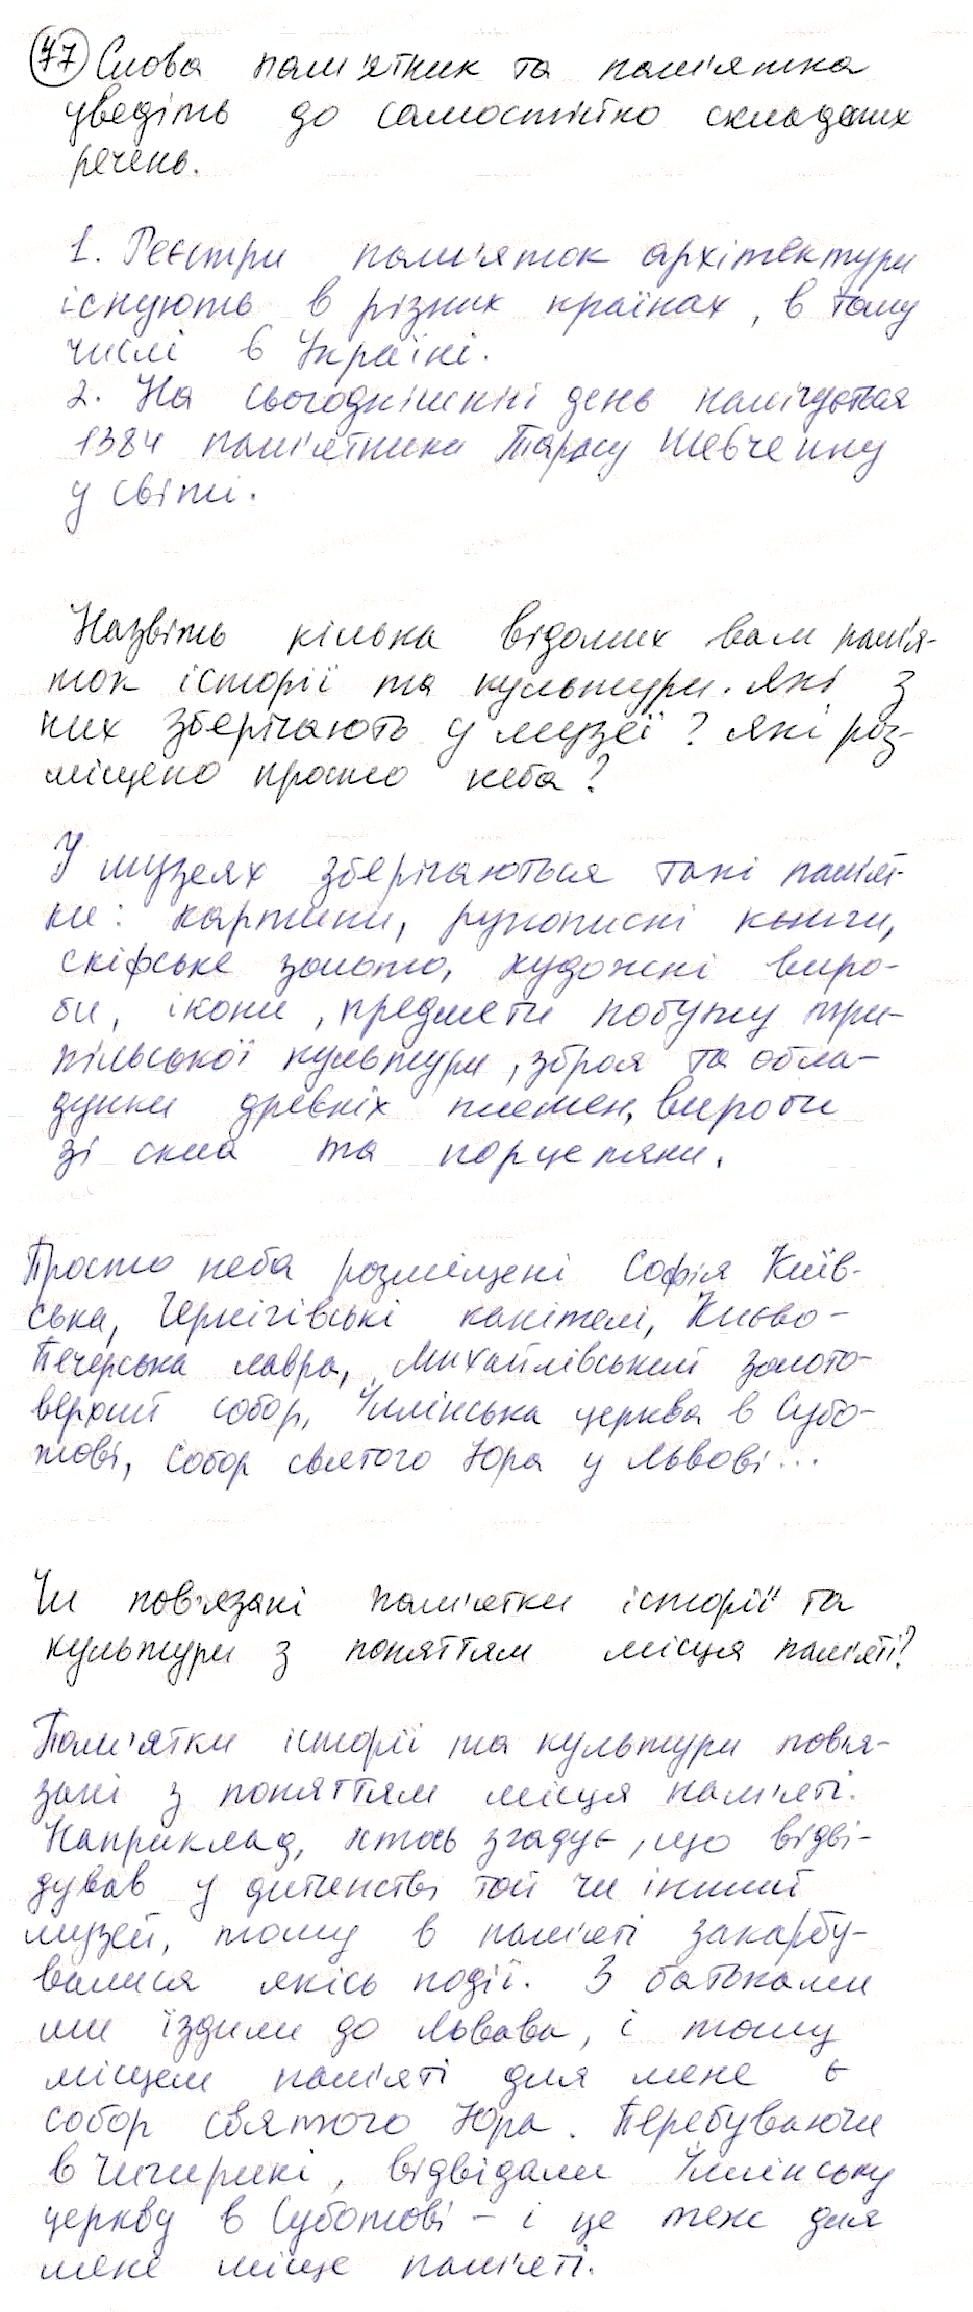 77 Слова пам'ятник та пам'ятка
уведіть до самостійно складених
речень.
1. Реєстри пам'яток архітектури
існують в різних країнах, в тому
числі в Україні.
2. На сьогоднішній день налічується
1384 пам'ятники Тарасу Шевченку
у світі.
Назвіть кілька відомих вам пам'я-
ток історії та культури. Які з
них зберігають у музеї? Які роз-
міщено просто неба?
У музеях зберігаються такі пам'ят-
ки: картини, рукописні книги,
скіфське золото, художні виро-
би, ікони, предмети побуту три-
пільської культури, зброя та обла-
дунки древніх племен, вироби
зі скла та порцеляни.
Просто неба розміщені Софія Київ-
ська, Чернігівські капітелі, Києво-
Печерська лавра, Михайлівський золото-
верхий собор, Іллінська церква в Субо-
тові, Собор святого Юра у Львові...
Чи пов'язані пам'ятки історії та
культури з поняттям місця пам'яті?
Пам'ятки історії та культури пов'я-
зані з поняттям місця пам'яті.
Наприклад, хтось згадує, що відві-
дував у дитинстві той чи інший
музей, тому в пам'яті закарбу-
валися якісь події. З батьками
ми їздили до Львова, і тому
місцем пам'яті для мене є
собор святого Юра. Перебуваючи
в Чигирині, відвідали Іллінську
церкву в Суботові - і це теж для
мене місце пам'яті.